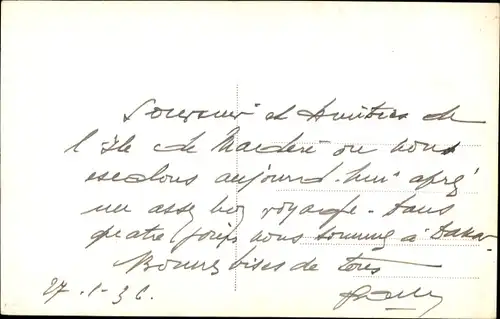 Souvenir et Amitiés de
l'Ile de Madère ou nous
escalons aujourd'hui apré
un assez bon voyage. Dans
quatre jours nous sommes à Dakar
Bonnes bises de tous
27.1.36.